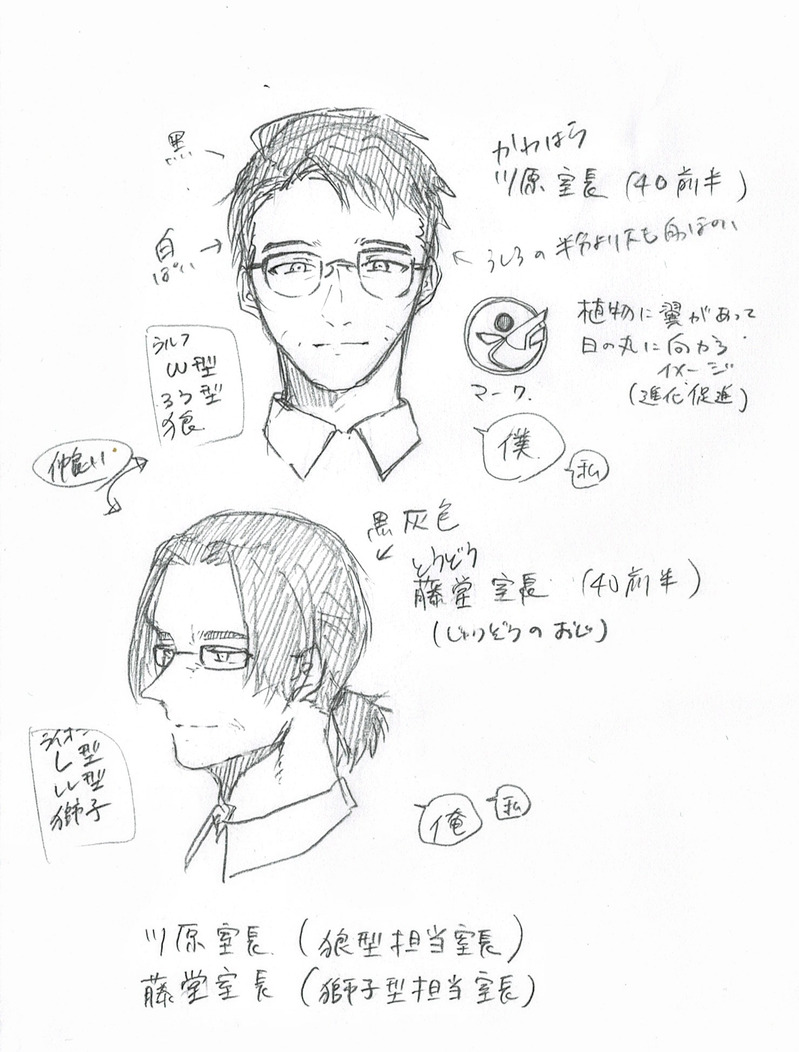 黒
かわはら
川原 室長 (40前半)
白
ぽい
うしろの半分より下も白っぽい
ウルフ
W型
狼
マーク.
植物に翼があって
日の丸に向かう
イメージ
(進化促進)
僕
私
仲良い
黒灰色
とうどう
藤堂 室長 (40前半)
ライオン
L型
LL型
獅子
俺
私
川原室長 (狼型担当室長)
藤堂室長 (獅子型担当室長)